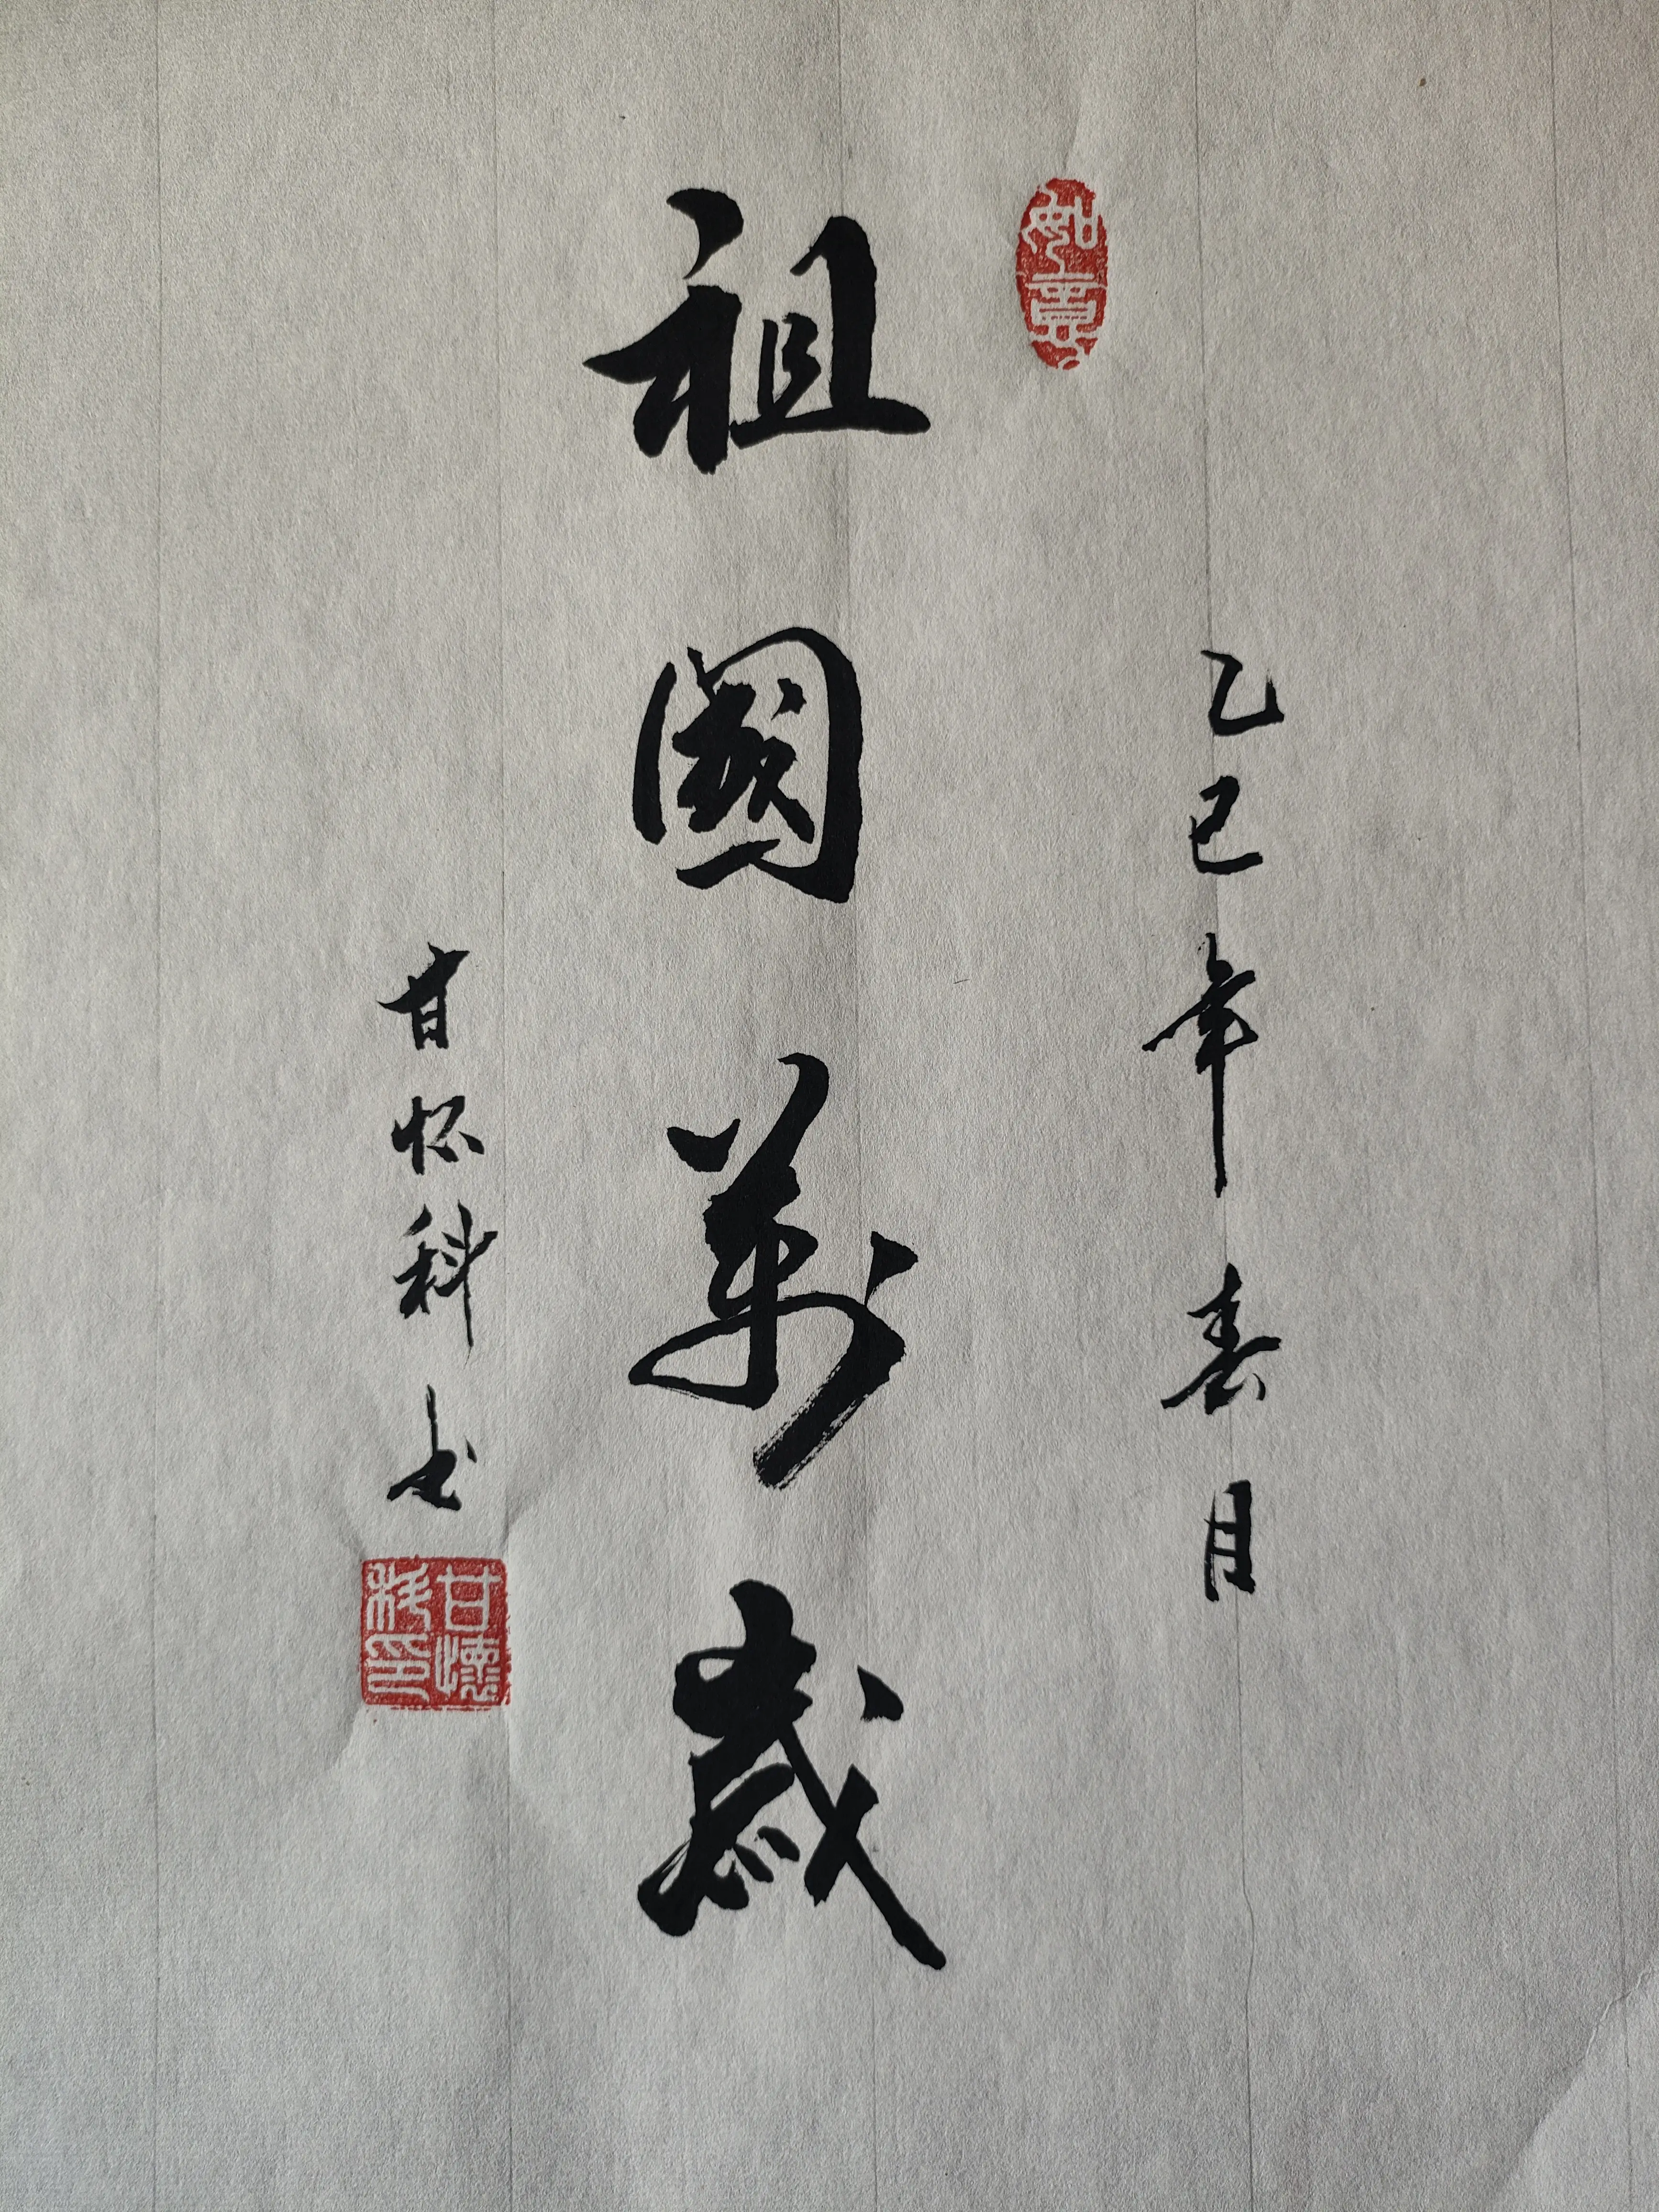 如意
乙巳年春月
祖國萬歲
甘怀科书
甘懷科印